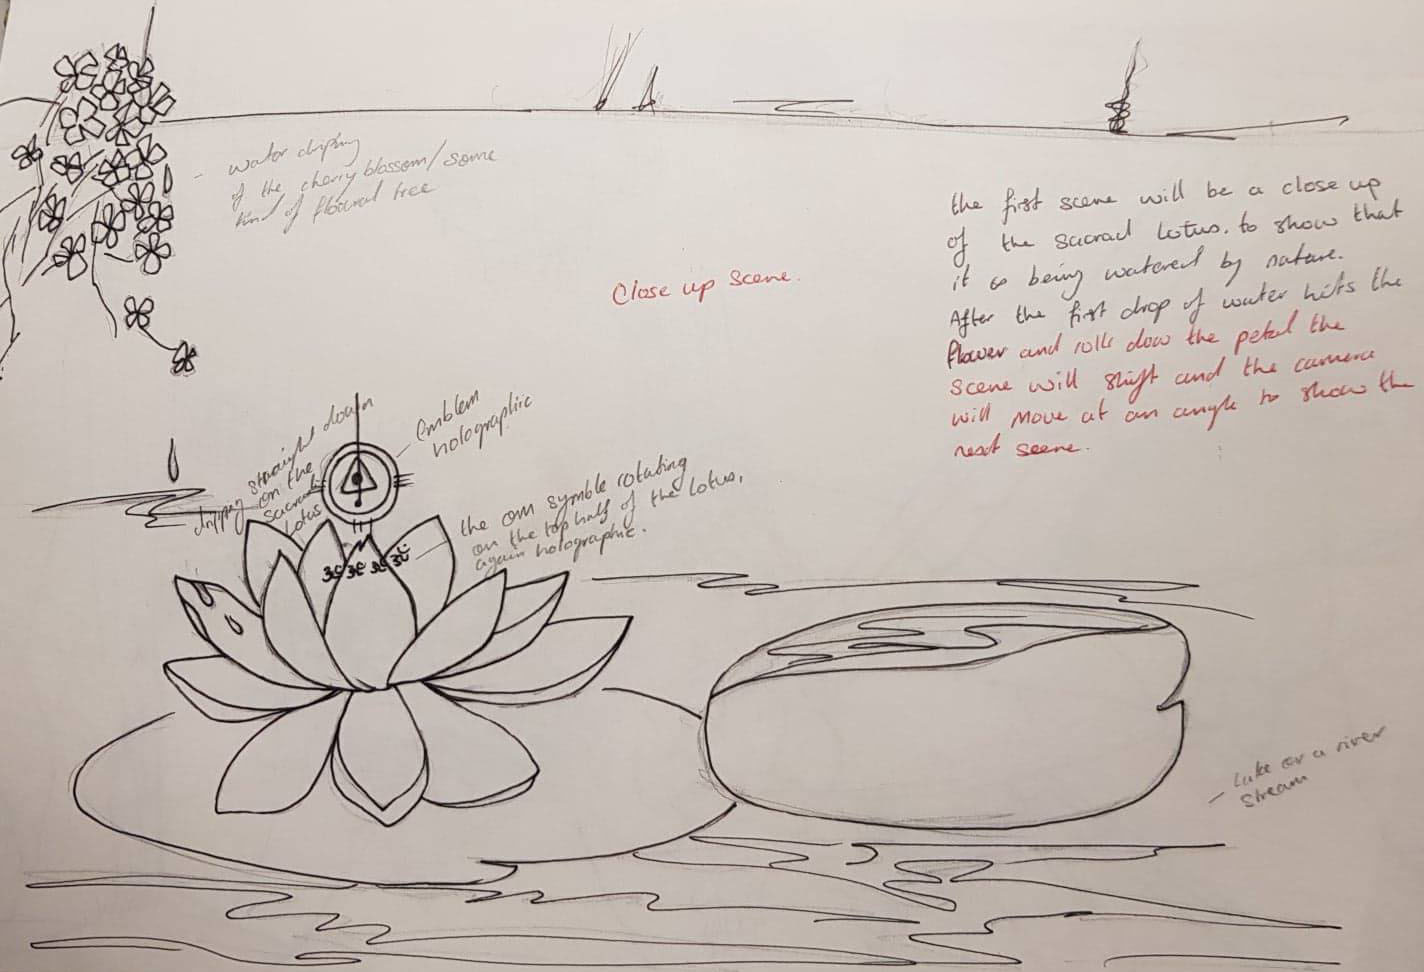 - water driping
of the cherry blossom/some
kind of floural tree
Close up scene.
the first scene will be a close up
of the sacrad Lotus. to show that
it is being watered by nature.
After the first drop of water hits the
flower and rolls dow the petal the
scene will shift and the camera
will move at an angle to show the
next scene.
emblem
holographic
dripping straight down
on the
sacrad
Lotus
the om symble rotating
on the top half of the lotus,
again holographic.
ॐ ॐ ॐ ॐ
- Lake or a river
stream